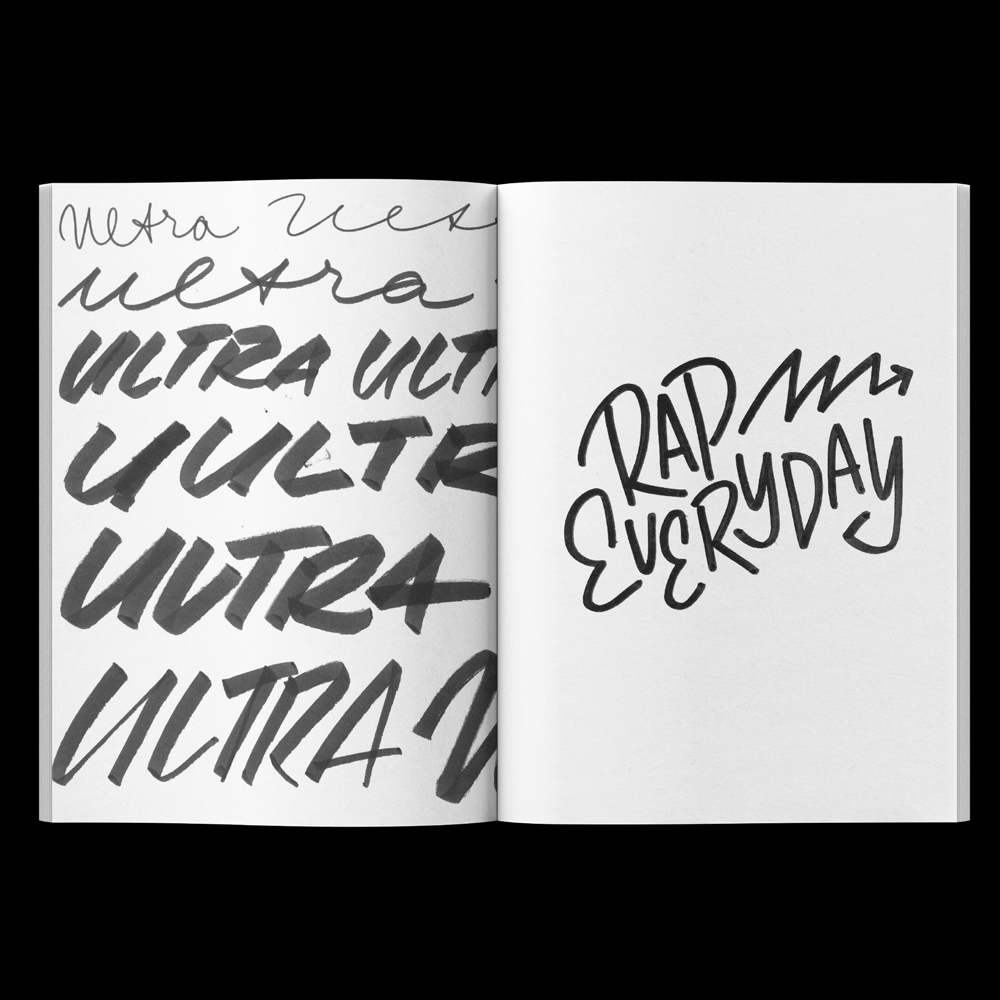 ultra ult
ultra
ULTRA ULT
U ULTR
ULTRA
ULTRA
RAP
EVERYDAY